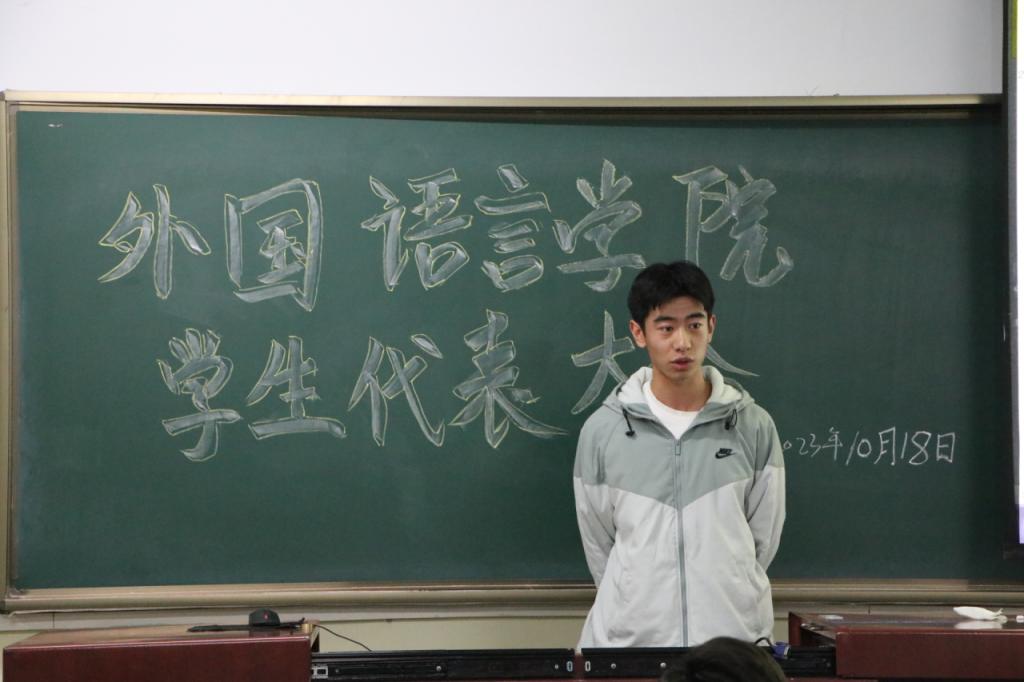 外国语言学院
学生代表大
023年10月18日